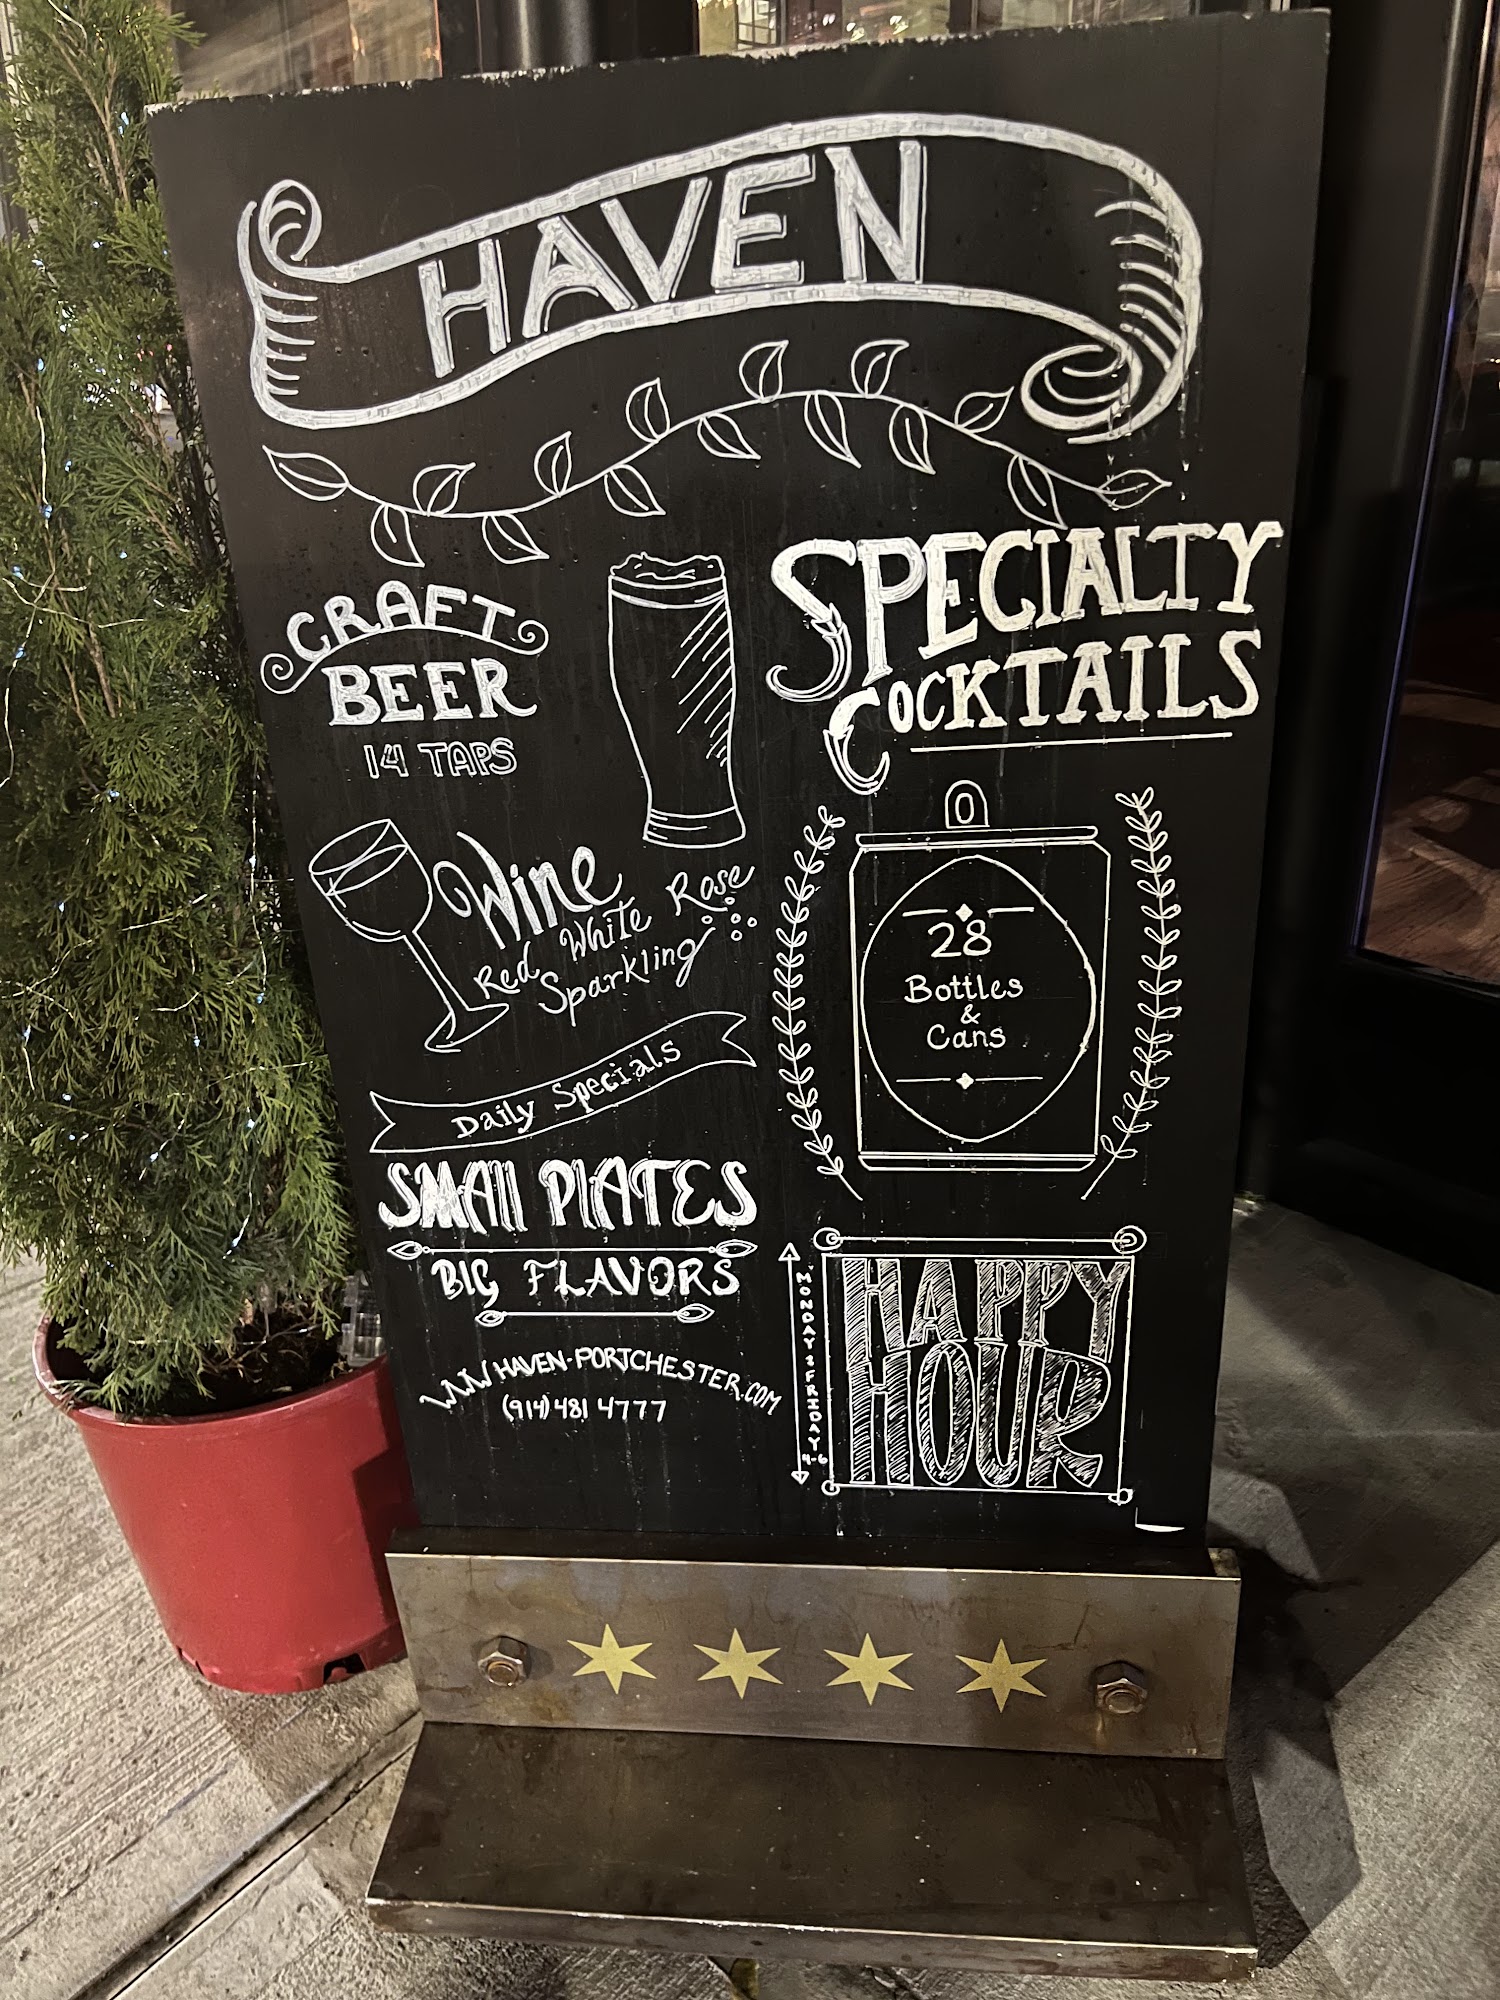 HAVEN
CRAFT
BEER
14 TAPS
Wine
Red White Rose
Sparkling
Daily Specials
SMAll PlATES
BIG FLAVORS
WWW HAVEN-PORTCHESTER.COM
(914) 481 4777
SPECIALTY
COCKTAILS
28
Bottles
&
Cans
HAPPY
HOUR
MONDAY 2 FRIDAY
4-6